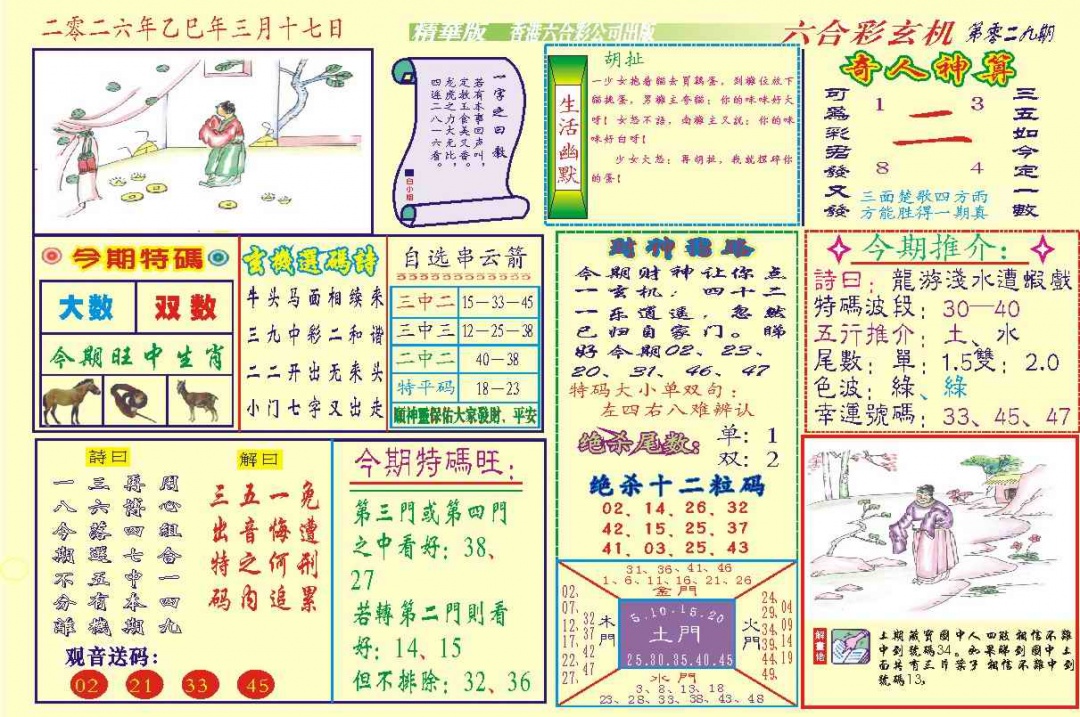 二零二六年乙巳年三月十七日
精華版 香港六合彩公司出版
六合彩玄机 第零二九期
一字之曰教
若有本事回声叫，
定教玉食美又香。
龙虎之力大无比，
四连二八一六看。
白小姐
生活幽默
胡扯
一少女抱着貓去買鷄蛋，到攤位放下
貓挑蛋，男攤主夸貓：你的咪咪好大
呀！女怒不語，南攤主又說：你的咪
咪好白呀！
少女大怒：再胡扯，我就捏碎你
的蛋！
奇人神算
可爲彩君發又發
1 3
二
8 4
三五如今定一數
三面楚歌四方雨
方能胜得一期真
今期特碼
大数 双数
今期旺中生肖
玄機選碼詩
牛头马面相续来
三九中彩二和谐
二二开出无来头
小门七字又出走
自选串云箭
三中二 15—33—45
三中三 12—25—38
二中二 40—38
特平码 18—23
願神靈保佑大家發財、平安
財神龍路
今期财神让你点
一玄机：四十二
一乐逍遥，忽然
已归自家门。睇
好今期02、23、
20、31、46、47
特码大小单双句：
左四右八难辨认
绝杀尾数：
单：1
双：2
绝杀十二粒码
02、14、26、32
42、15、25、37
41、03、25、43
今期推介：
詩曰：龍游淺水遭蝦戲
特碼波段：30—40
五行推介：土、水
尾數：單：1.5雙：2.0
色波：綠、綠
幸運號碼：33、45、47
詩曰
一八今期不分離
三六落選五有機
再博四七中本期
同心組合一四九
解曰
三出特码
五音之内
一悔何追
免遭刑累
观音送码：
02 21 33 45
今期特碼旺：
第三門或第四門
之中看好：38、
27
若轉第二門則看
好：14、15
但不排除：32、36
31、36、41、46
1、6、11、16、21、26
金門
02、07、12、17、22、27、
32、37、42、47
木門
5.10.15.20
土門
25.30.35.40.45
火門
24、29、34、39、44、49、
04、09、14、19
水門
3、8、13、18
23、28、33、38、43、48
解畫佬
上期藏寶圖中人四肢相信不難
中到號碼34。如果睇到圖中上
面共有三片葉子相信不難中到
號碼13。